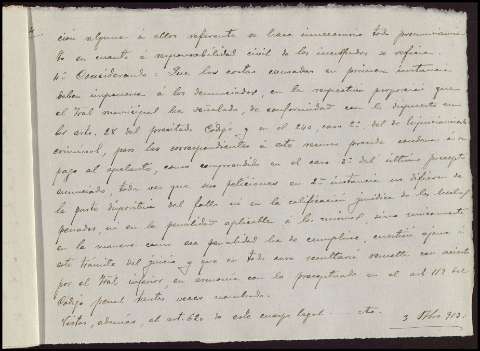 ción alguna á ellos referente se hace innecesario todo pronunciamien
to en cuanto á responsabilidad civil de los inculpados se refiere.
4º Considerando: Que las costas causadas en primera instancia
deben imponerse á los denunciados, en la respectiva proporción que
el Tral municipal ha señalado, de conformidad con lo dispuesto en
los arts. 28 del precitado Código y en el 240, caso 2º, del de Enjuiciamiento
criminal, pero las correspondientes á este recurso procede condenar á su
pago al apelante, como comprendido en el caso 2º del último precepto
enunciado, toda vez que sus peticiones en 2ª instancia no difieren de
la parte dispositiva del fallo ni en la calificación jurídica de los hechos
penados, ni en la penalidad aplicable á los mismos, sino únicamente
en la manera como esa penalidad ha de cumplirse, cuestión ajena á
este trámite del juicio y que en todo caso resultaría resuelta con acierto
por el Tral inferior en armonía con lo preceptuado en el art 119 del
Código penal tantas veces nombrado.
Vistos, además, el art. de este cuerpo legal etc.
3 913.